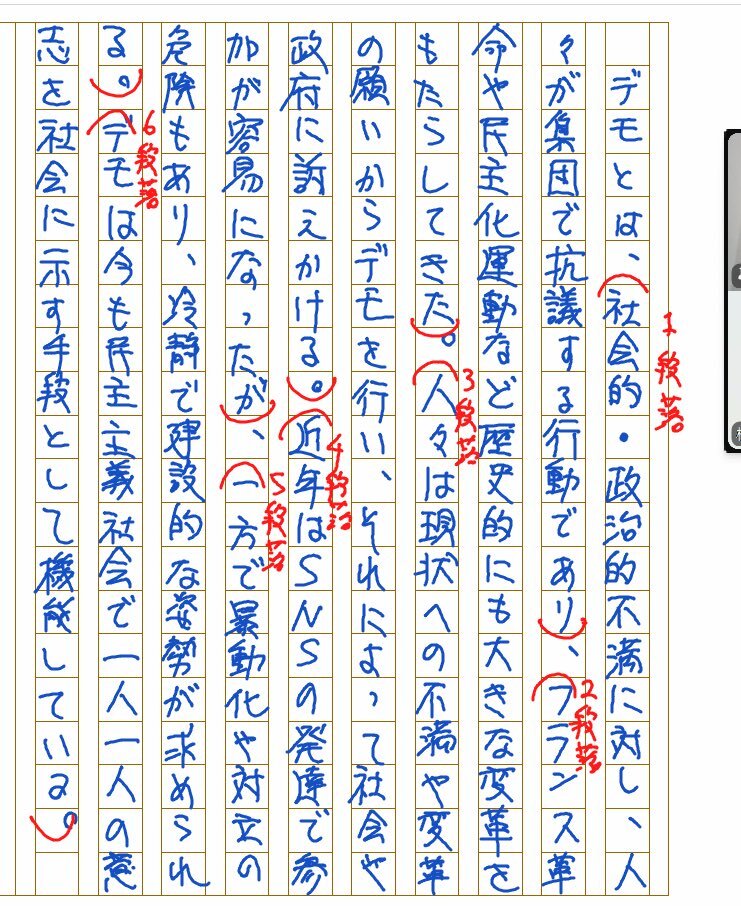 デモとは、社会的・政治的不満に対し、人
々が集団で抗議する行動であり、フランス革
命や民主化運動など歴史的にも大きな変革を
もたらしてきた。人々は現状への不満や変革
の願いからデモを行い、それによって社会や
政府に訴えかける。近年はSNSの発達で参
加が容易になったが、一方で暴動化や対立の
危険もあり、冷静で建設的な姿勢が求められ
る。デモは今も民主主義社会で一人一人の意
志を社会に示す手段として機能している。
1段落
2段落
3段落
4段落
5段落
6段落